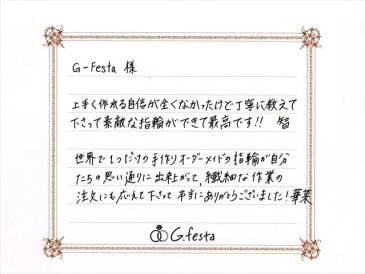 G-Festa 様
上手く作れる自信が全くなかったけど丁寧に教えて
下さって素敵な指輪ができて最高です!! 智
世界で1つだけの手作りオーダーメイドの指輪が自分
たちの思い通りに出来上がって、繊細な作業の
注文にも応えて下さって本当にありがとうございました!華菜
G.festa